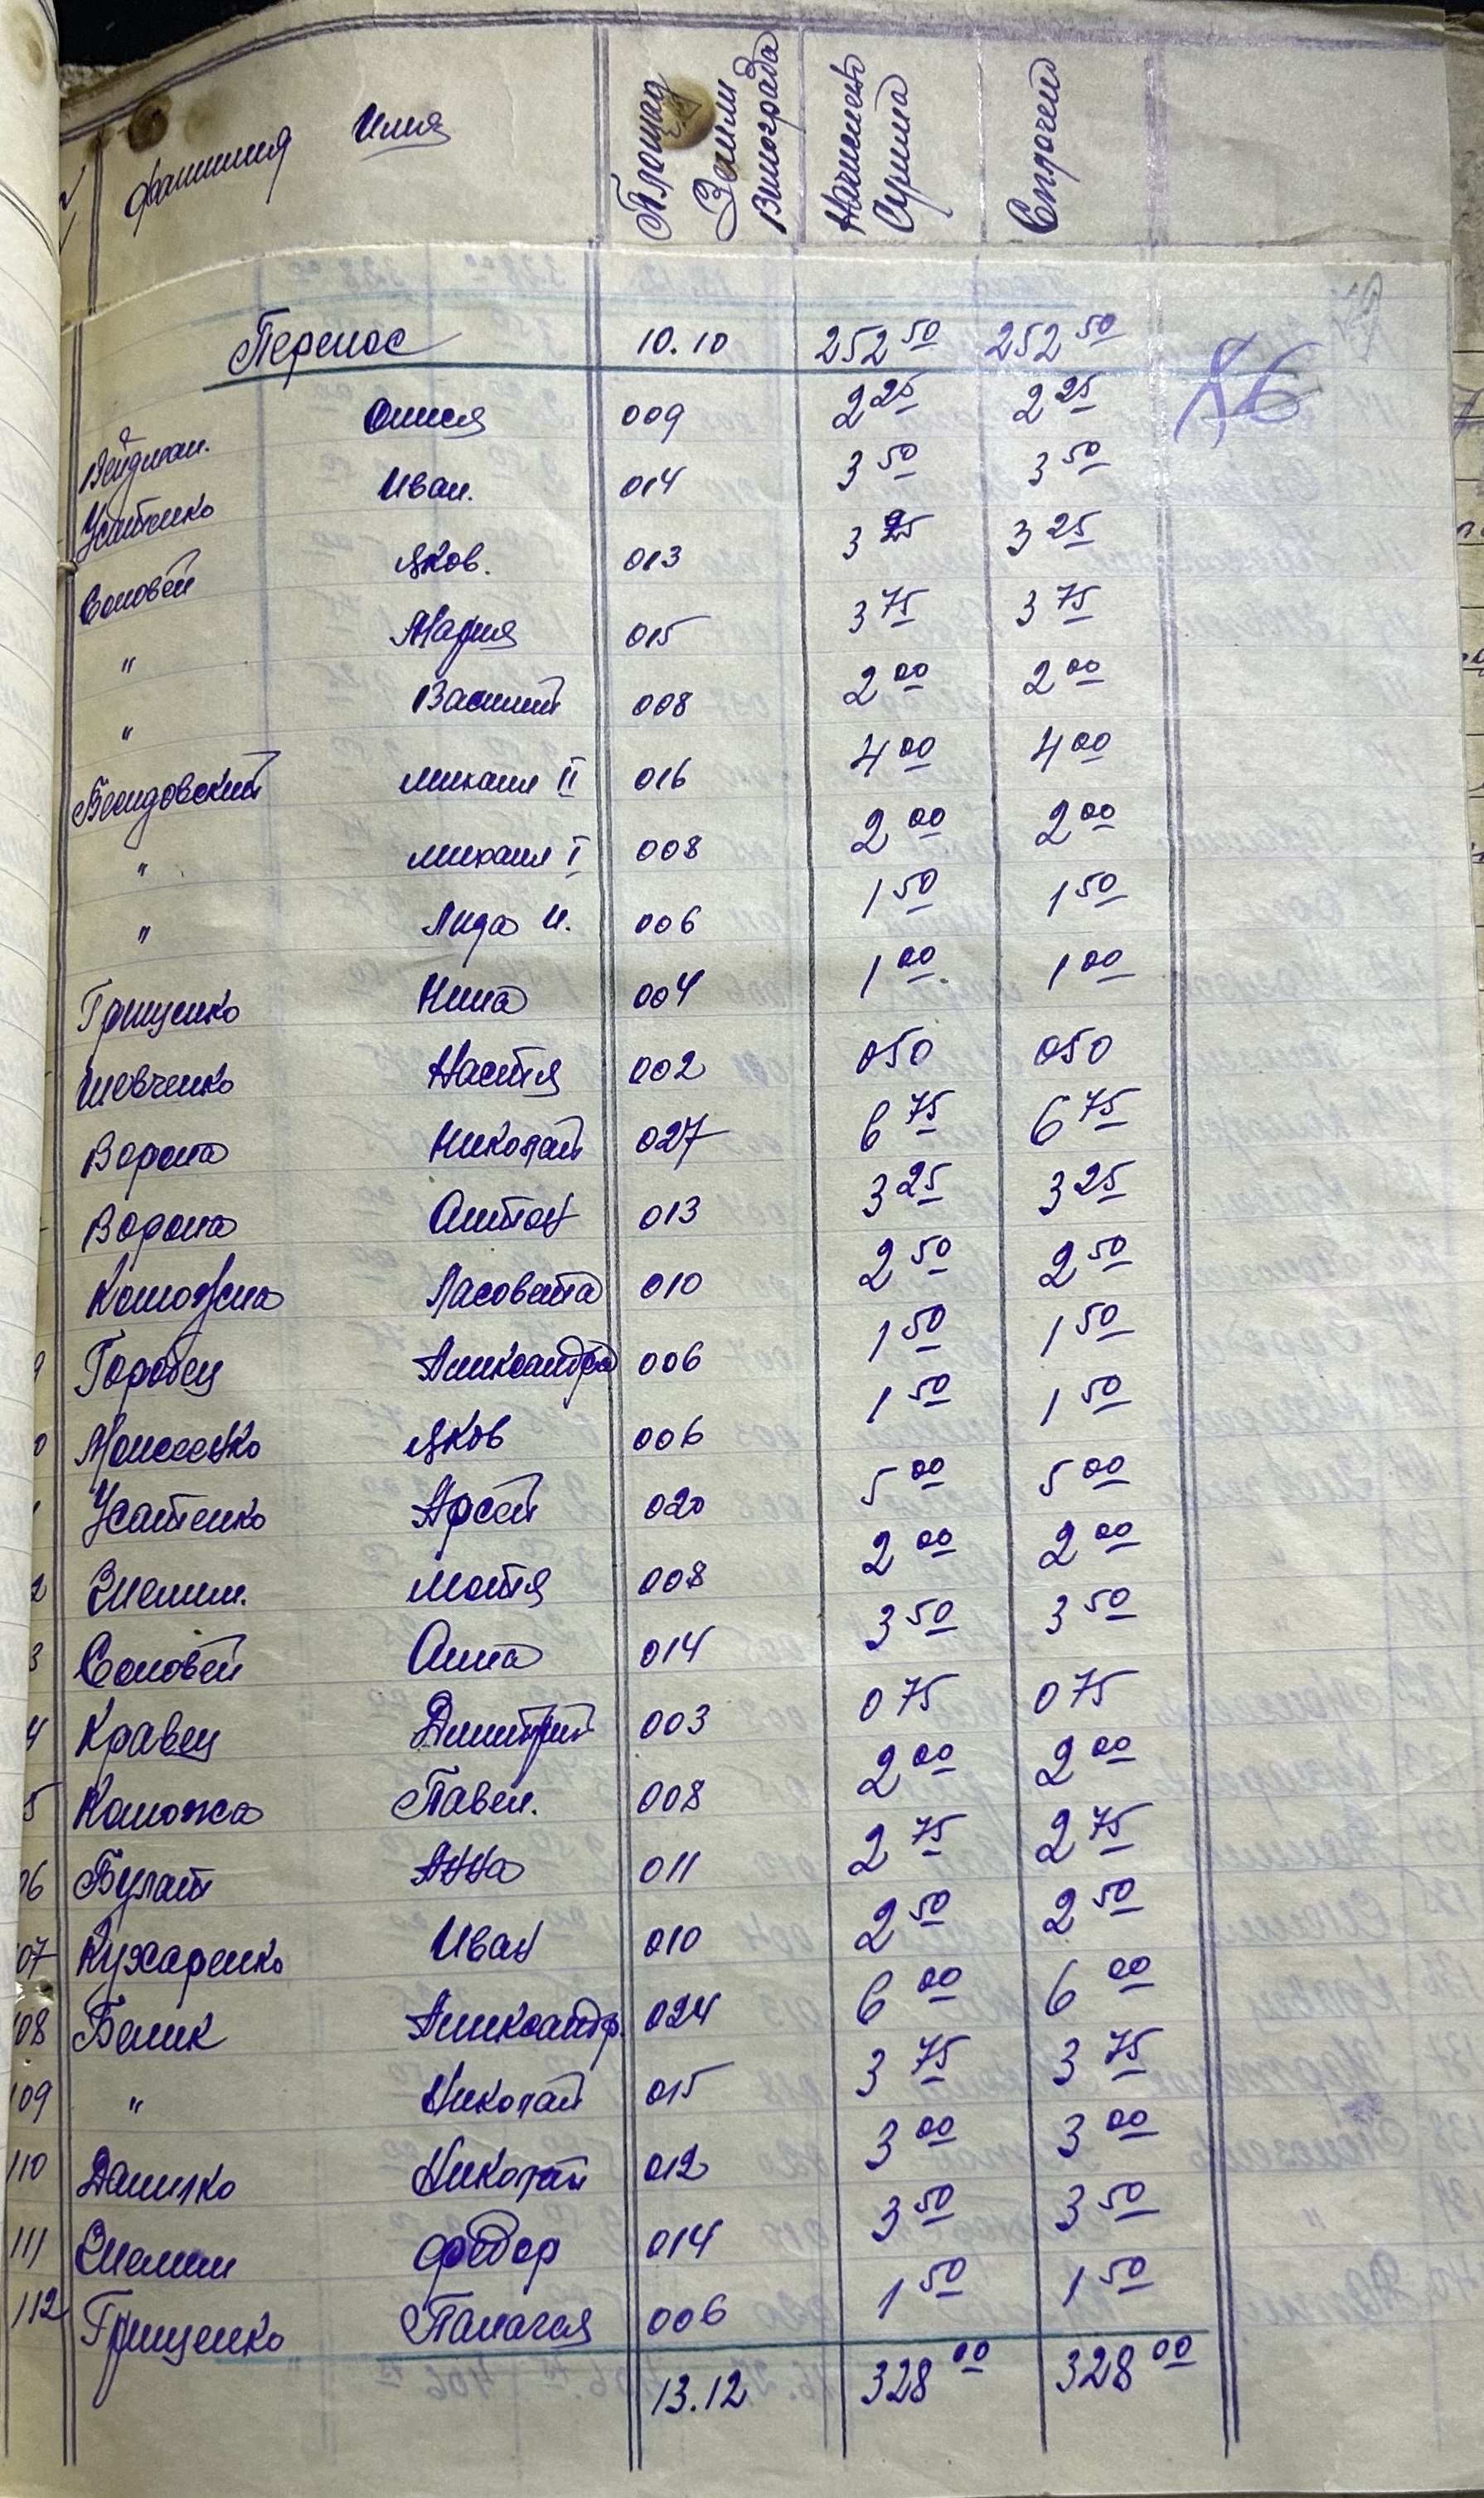 № Фамилия Имя Площад Земли Винограда Начислено Сумма Сплочен
Перенос 10.10 252 50 252 50
86
Вейдман. Олися 009 2 25 2 25
Усатенко Иван. 014 3 50 3 50
Соловей Яков. 013 3 25 3 25
" Мария 015 3 75 3 75
" Василий 008 2 00 2 00
Беңдовский Михаил II 016 4 00 4 00
" Михаил I 008 2 00 2 00
" Лида И. 006 1 50 1 50
Грищенко Нина 004 1 00 1 00
Шевченко Настя 002 0 50 0 50
Ворона Николай 027 6 75 6 75
Ворона Антон 013 3 25 3 25
Ласовета 010 2 50 2 50
Горобец Александра 006 1 50 1 50
0 Моисеенко Яков 006 1 50 1 50
1 Усатенко Арсей 020 5 00 5 00
2 Мотя 008 2 00 2 00
3 Соловей Анна 014 3 50 3 50
4 Кравец Дмитрий 003 0 75 0 75
5 Павел. 008 2 00 2 00
06 Булат Анна 011 2 75 2 75
07 Кухаренко Иван 010 2 50 2 50
108 Белик Александр. 024 6 00 6 00
109 " Николай 015 3 75 3 75
110 Данилко Николай 012 3 00 3 00
111 Федор 014 3 50 3 50
112 Грищенко Палагея 006 1 50 1 50
13.12 328 00 328 00